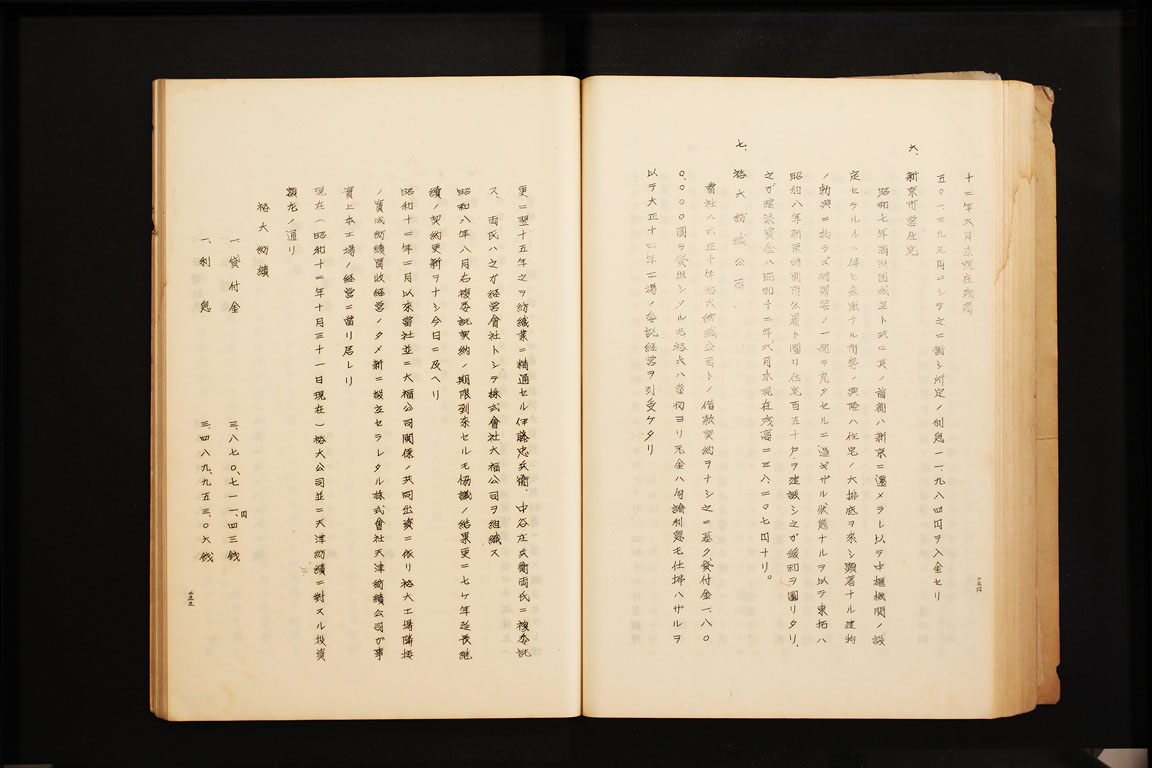 十二年六月末現在残高
五〇一、二九五円ニシテ之ニ対シ所定ノ利息一一、九八四円ヲ入金セリ
六、新京市営住宅
昭和七年満洲国成立ト共ニ其ノ首都ハ新京ニ定メラレ以テ中枢機関ノ設
定セラルルニ伴ヒ急激ナル市勢ノ興隆ハ住宅ノ大拂底ヲ来シ顕著ナル建物
ノ勃興ニ拘ラズ 一部ヲ充タセルニ過ギザル状態ナルヲ以テ東拓ハ
昭和八年新京特別市公署ト図リ住宅百五十戸ヲ建設シ之ガ緩和ヲ図リタリ、
之ガ建築資金ハ昭和十二年六月末現在残高二三八、二〇七円ナリ。
七、裕大紡織公司
当社ハ大正十年裕大紡織公司トノ借款契約ヲナシ之ニ基ク貸付金一、八〇
〇、〇〇〇圓ヲ貸 シタルモ裕大ハ当初ヨリ元金ハ勿論利息モ仕拂ハザルヲ
以テ大正十四年工場ノ委託経営ヲ引受ケタリ
二五四
更ニ翌十五年之ヲ紡織業ニ精通セル伊藤忠兵衛、中谷庄兵衛両氏ニ複委託
ス、両氏ハ之ガ経営會社トシテ株式會社大福公司ヲ組織ス
昭和八年八月右複委託契約ノ期限到来セルモ協議ノ結果更ニ七ケ年延長継
續ノ契約更新ヲナシ今日ニ及ヘリ
昭和十二年二月以来當社並ニ大福公司関係ノ共同出資ニ依リ裕大工場隣接
ノ寶成紡績買収経営ノタメ新ニ設立セラレタル株式會社天津紡績公司ガ事
實上本工場ノ経営ニ當リ居レリ
現在(昭和十二年十月三十一日現在)裕大公司並ニ天津紡績ニ對スル投資
額左ノ通リ
裕大紡績
一、貸付金 三、八七〇、七一一、円四三銭
一、利息 三、四八九、九五三、〇六銭
二五五